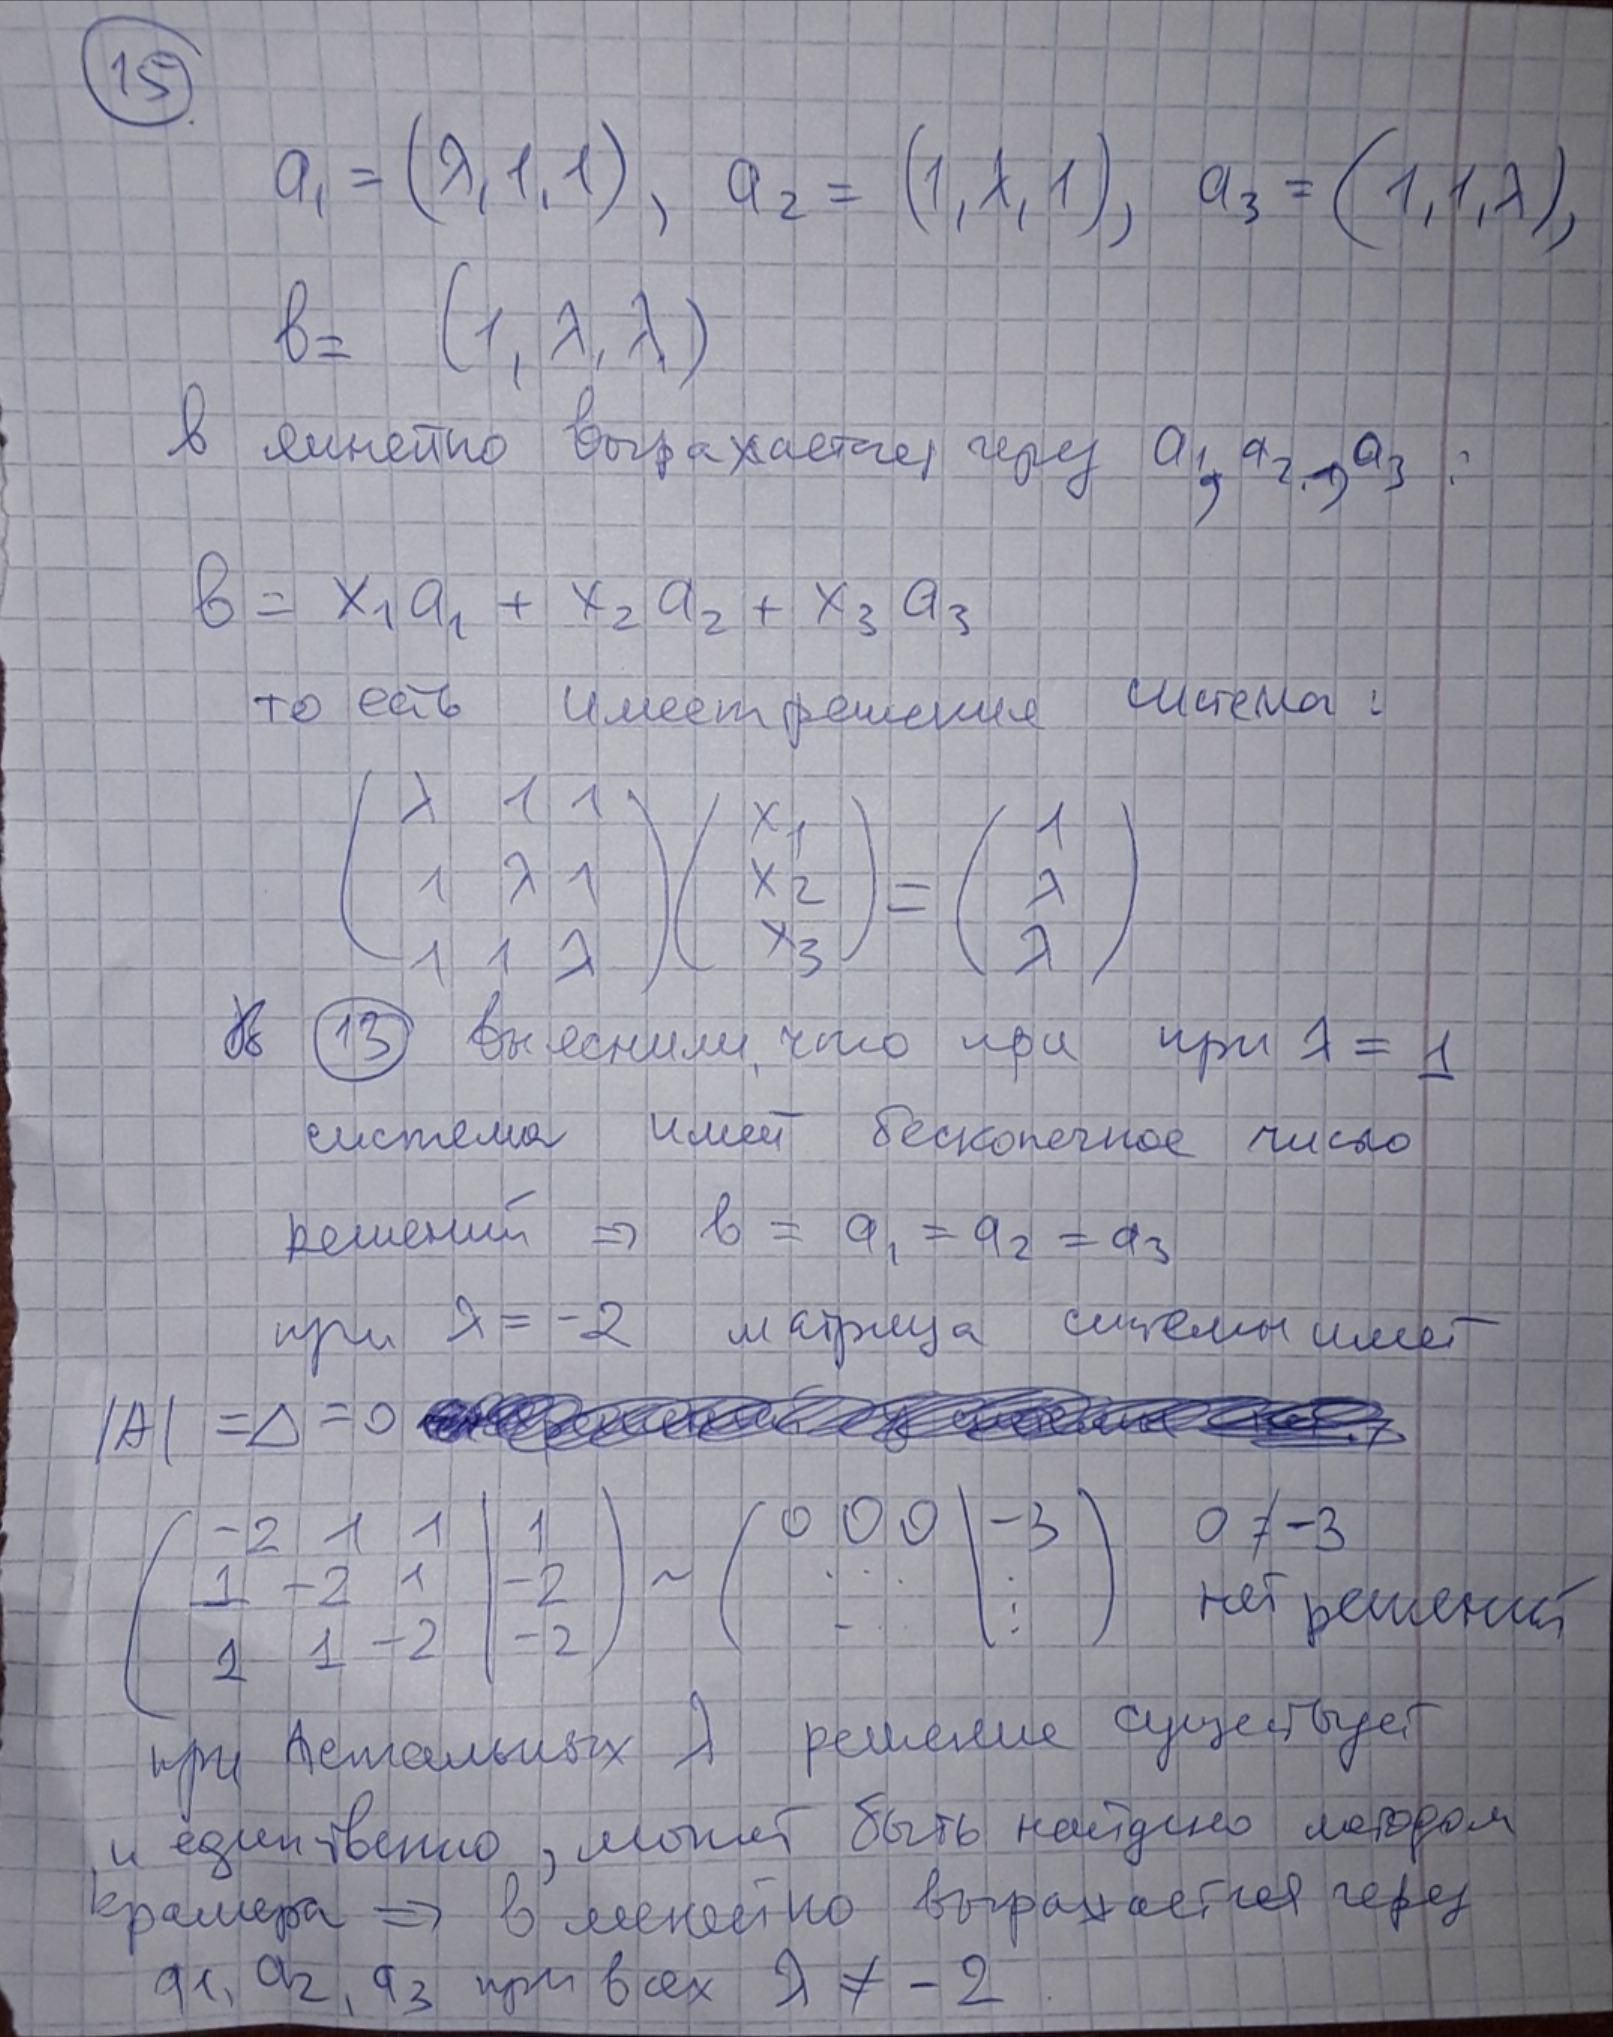 15.
a₁ = (λ, 1, 1), a₂ = (1, λ, 1), a₃ = (1, 1, λ),
b = (1, λ, λ)
b линейно выражается через a₁, a₂, a₃ :
b = x₁a₁ + x₂a₂ + x₃a₃
то есть имеет решение система:
(λ 1 1) (x₁) = (1)
(1 λ 1) (x₂) (λ)
(1 1 λ) (x₃) (λ)
В 13 выяснили, что при при λ = 1
система имеет бесконечное число
решений ⇒ b = a₁ = a₂ = a₃
при λ = -2 матрица системы имеет
|A| = Δ = 0
(-2 1 1 | 1) ~ (0 0 0 | -3) 0 ≠ -3
(1 -2 1 | -2) (... | :) нет решений
(1 1 -2 | -2)
при остальных λ решение существует
и единственно, может быть найдено методом
Крамера ⇒ b линейно выражается через
a1, a2, a3 при всех λ ≠ -2